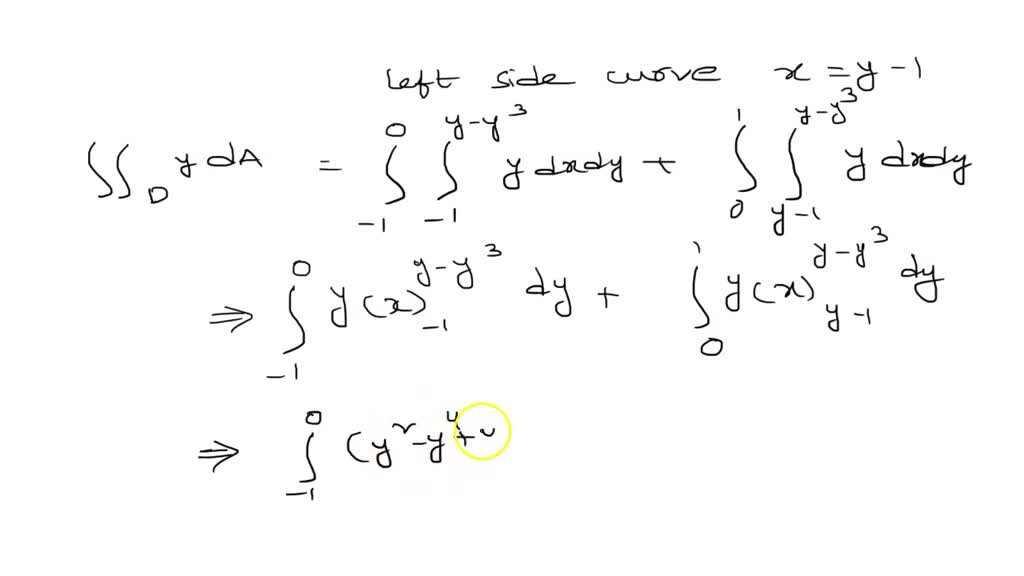 left side curve x = y - 1
∬_D y dA = ∫_{-1}^{0} ∫_{-1}^{y-y^3} y dx dy + ∫_{0}^{1} ∫_{y-1}^{y-y^3} y dx dy
⇒ ∫_{-1}^{0} y (x)_{-1}^{y-y^3} dy + ∫_{0}^{1} y (x)_{y-1}^{y-y^3} dy
⇒ ∫_{-1}^{0} (y^2 - y^4 +